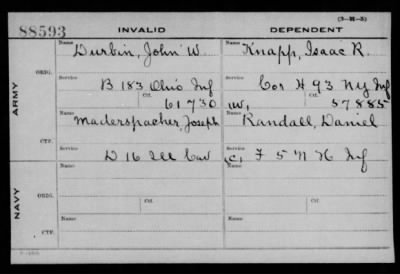 (3-M-3)
88593 INVALID DEPENDENT
Name Durbin, John W. Name Knapp, Isaac R.
ORIG.
Service Service
B 183 Ohio Inf Cor H 93 Ny Inf
Ctf. 61730 (W) Ctf. 57885
ARMY
Name Maderspacher, Joseph Name Randall, Daniel
CTF.
Service Service
D 16 Ill Cav (C) F 5 N H Inf
Name Name
ORIG.
Ctf. Ctf.
NAVY
Name Name
CTF.